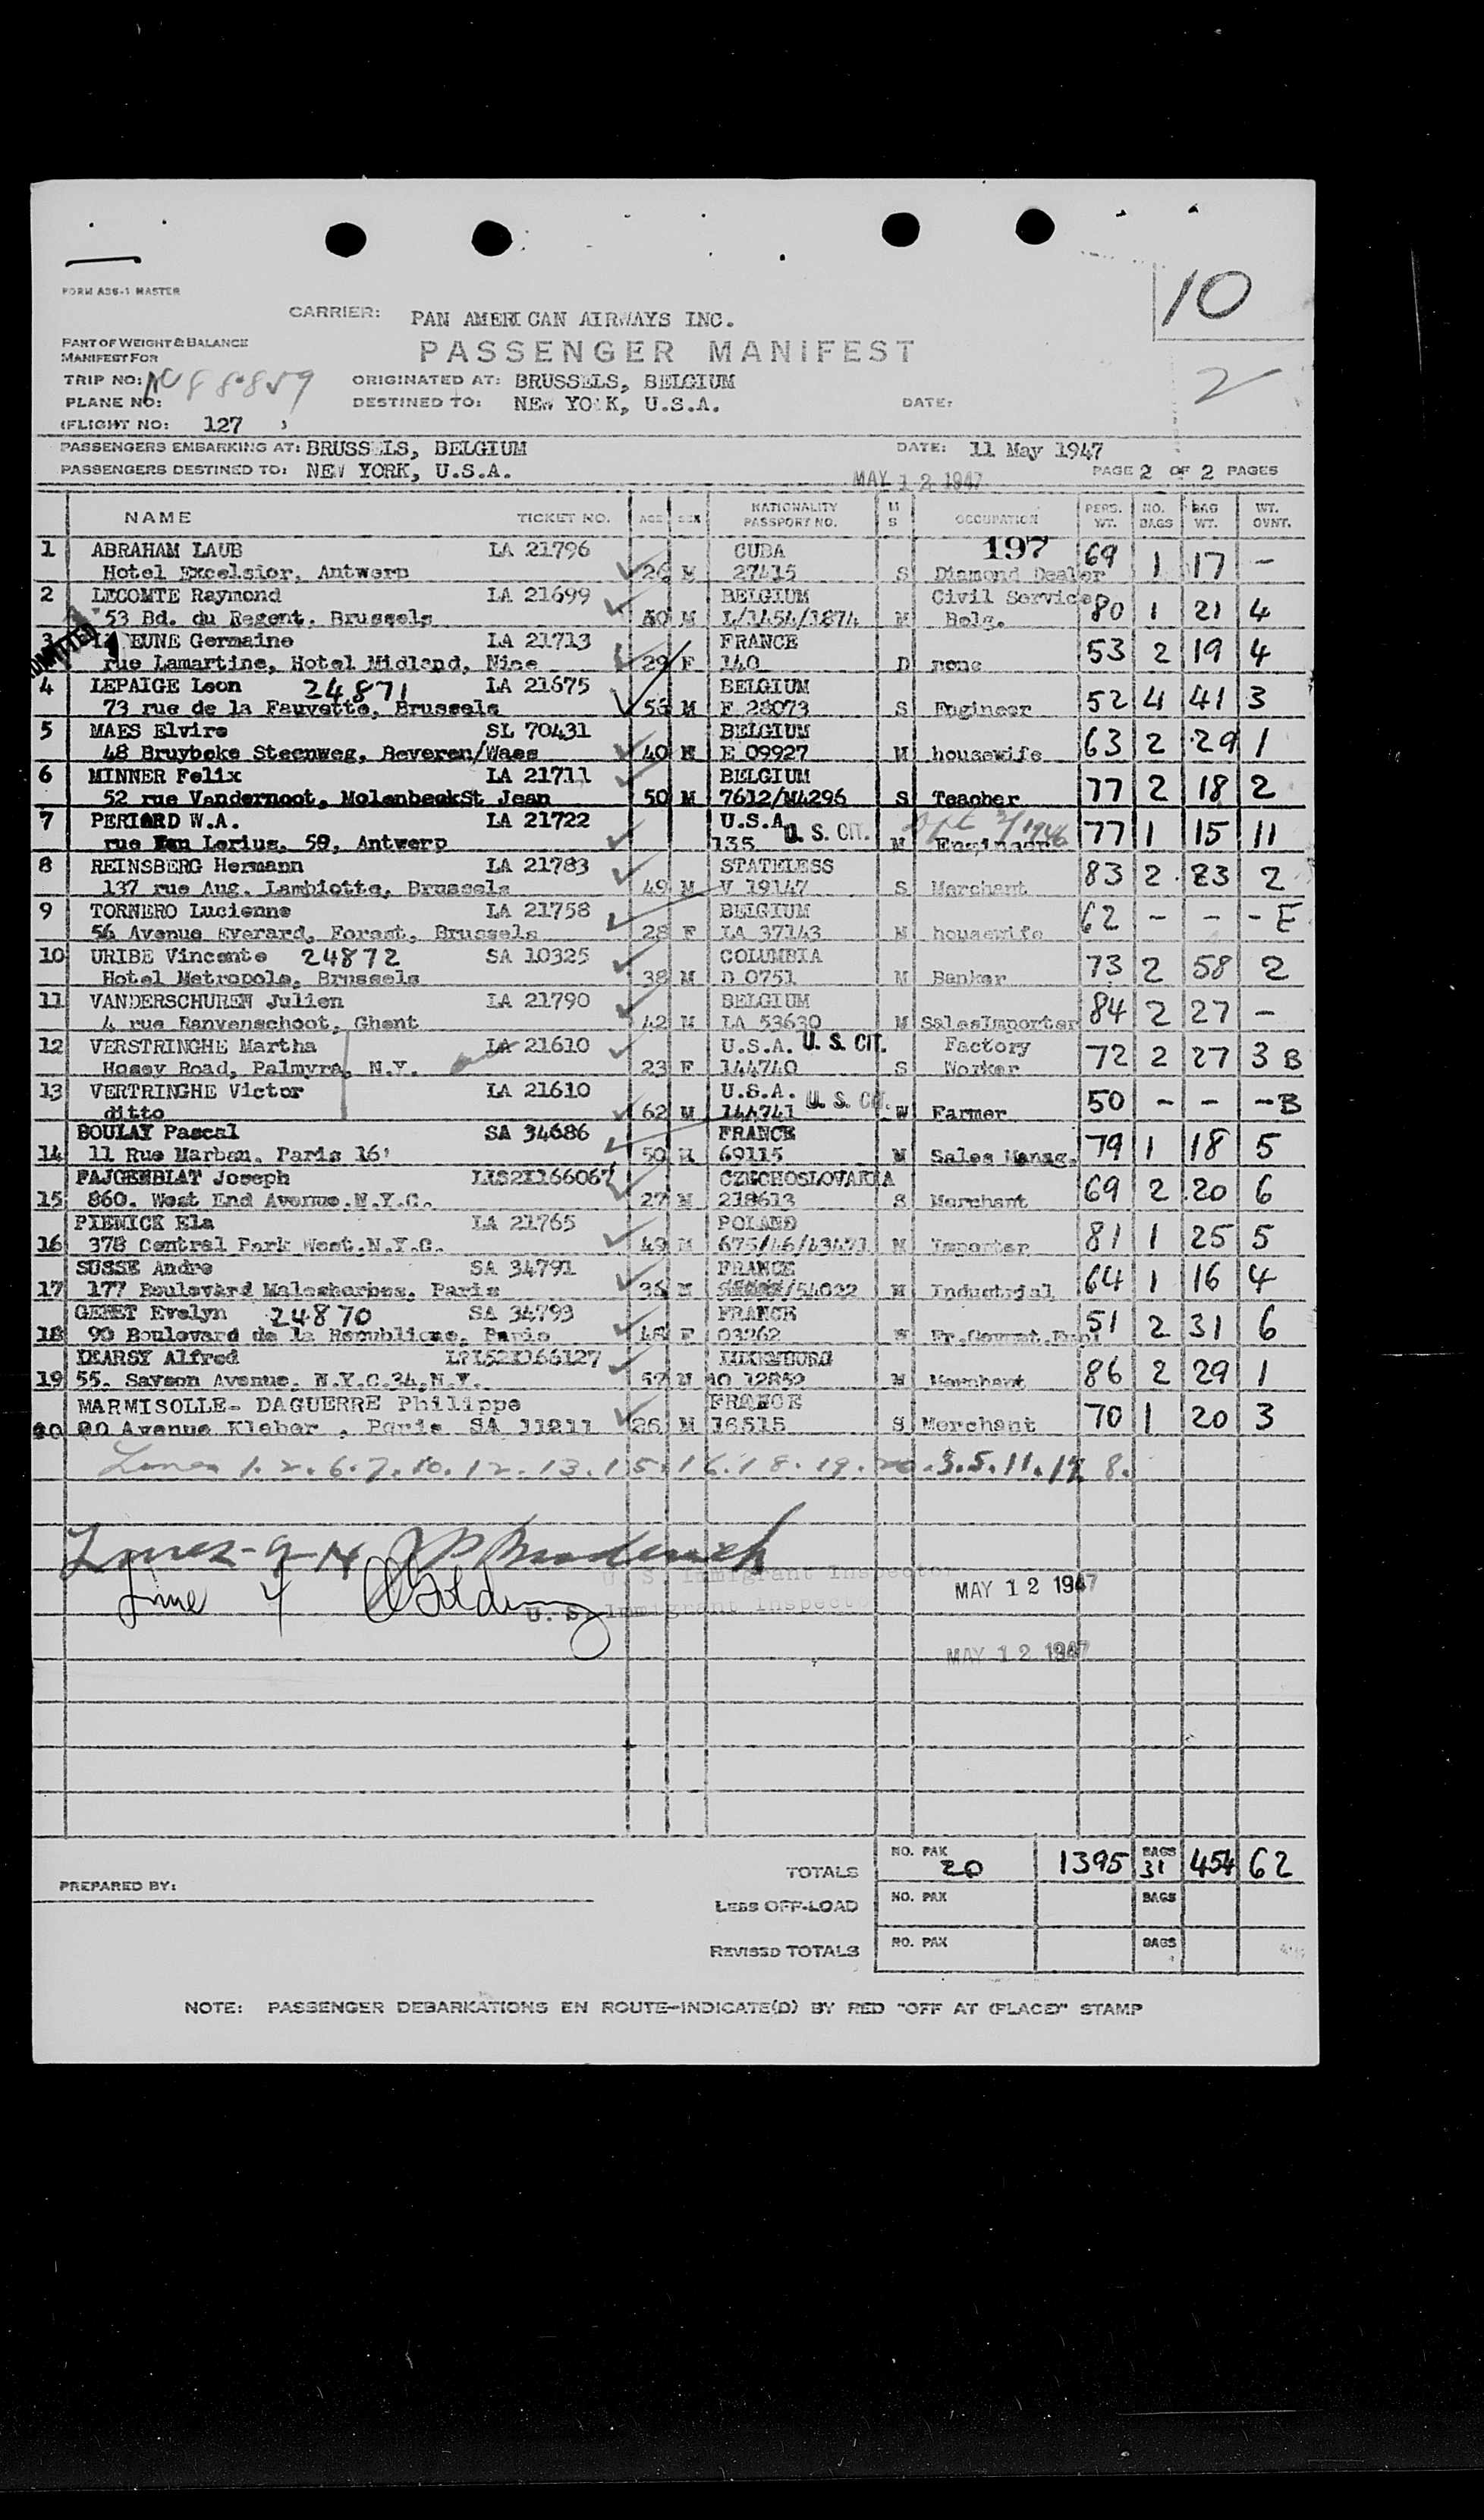 10
FORM A36-1 MASTER
CARRIER: PAN AMERICAN AIRWAYS INC.
PART OF WEIGHT & BALANCE
MANIFEST FOR
PASSENGER MANIFEST
2
TRIP NO: NC 88859 ORIGINATED AT: BRUSSELS, BELGIUM
PLANE NO: DESTINED TO: NEW YORK, U.S.A. DATE:
(FLIGHT NO: 127 )
PASSENGERS EMBARKING AT: BRUSSELS, BELGIUM DATE: 11 May 1947
PASSENGERS DESTINED TO: NEW YORK, U.S.A. MAY 12 1947 PAGE 2 OF 2 PAGES
NAME TICKET NO. AGE SEX NATIONALITY PASSPORT NO. M S OCCUPATION PERS. WT. NO. BAGS BAG WT. WT. OVNT.
197
1 ABRAHAM LAUB LA 21796 CUBA 69 1 17 -
Hotel Excelsior, Antwerp 26 M 27415 S Diamond Dealer
2 LECOMTE Raymond LA 21699 BELGIUM Civil Service 80 1 21 4
53 Bd. du Regent, Brussels M L/1454/1874 M Belg.
3 EUNE Germaine LA 21713 FRANCE 53 2 19 4
rue Lamartine, Hotel Midland, Nice 29 F 140 D none
4 LEPAIGE Leon 24871 LA 21675 BELGIUM 52 4 41 3
73 rue de la Fauvette, Brussels 56 M F 28073 S Engineer
5 MAES Elvire SL 70431 BELGIUM 63 2 29 1
48 Bruybeke Steenweg, Beveren/Waes 40 M E 09927 M housewife
6 MINNER Felix LA 21711 BELGIUM 77 2 18 2
52 rue Vandernoot, MolenbeekSt Jean 50 M 7612/M4296 S Teacher
7 PERIARD W.A. LA 21722 U.S.A. U. S. CIT. 77 1 15 11
rue Van Lerius, 59, Antwerp 135 M Engineer
8 REINSBERG Hermann LA 21783 STATELESS 83 2 23 2
137 rue Aug. Lambiotte, Brussels 49 M V 19147 S Merchant
9 TORNERO Lucienne LA 21758 BELGIUM 62 - - - E
56 Avenue Everard, Forest, Brussels 28 F LA 37143 M housewife
10 URIBE Vincente 24872 SA 10325 COLUMBIA 73 2 58 2
Hotel Metropole, Brussels 38 M D 0751 M Banker
11 VANDERSCHUREN Julien LA 21790 BELGIUM 84 2 27 -
4 rue Ranvenschoot, Ghent 42 M LA 53630 M SalesImporter
12 VERSTRINGHE Martha LA 21610 U.S.A. U. S. CIT. Factory 72 2 27 3 B
Hosey Road, Palmyra, N.Y. 23 F 144740 S Worker
13 VERTRINGHE Victor LA 21610 U.S.A. U. S. CIT. 50 - - - B
ditto 62 M 144741 W Farmer
BOULAY Pascal SA 34686 FRANCE 79 1 18 5
14 11 Rue Marbau, Paris 16' 50 M 69115 M Sales Manag.
FAJGENBLAT Joseph CZECHOSLOVAKIA 69 2 20 6
15 860, West End Avenue, N.Y.C. 27 M 218613 S Merchant
PIENICK Ela LA 21765 POLAND 81 1 25 5
16 378 Central Park West, N.Y.C. 49 M 675/46/43471 M Importer
SUSSE Andre SA 34791 FRANCE 64 1 16 4
17 177 Boulevard Malesherbes, Paris 36 M /54022 M Industrial
GENET Evelyn 24870 SA 34793 FRANCE 51 2 31 6
18 90 Boulevard de la Republique, Paris 48 F 03262
DEARSY Alfred LUXEMBURG 86 2 29 1
19 55, Savson Avenue, N.Y.C.34,N.Y. 57 M 12852 M Merchant
MARMISOLLE- DAGUERRE Philippe FRANCE 70 1 20 3
20 Avenue Kleber , Paris SA 11211 26 M 16515 S Merchant
Lines 1. 2. 6. 7. 10. 12. 13. 15. 16. 18. 19. 20. 3. 5. 11. 17 8.
Lines - 9-14
U. S. Immigrant Inspector
Line 4 MAY 12 1947
U. S. Immigrant Inspector
MAY 12 1947
TOTALS NO. PAX 20 1395 BAGS 31 454 62
PREPARED BY:
LESS OFF-LOAD NO. PAX BAGS
REVISED TOTALS NO. PAX BAGS
NOTE: PASSENGER DEBARKATIONS EN ROUTE-INDICATE(D) BY RED "OFF AT (PLACE)" STAMP